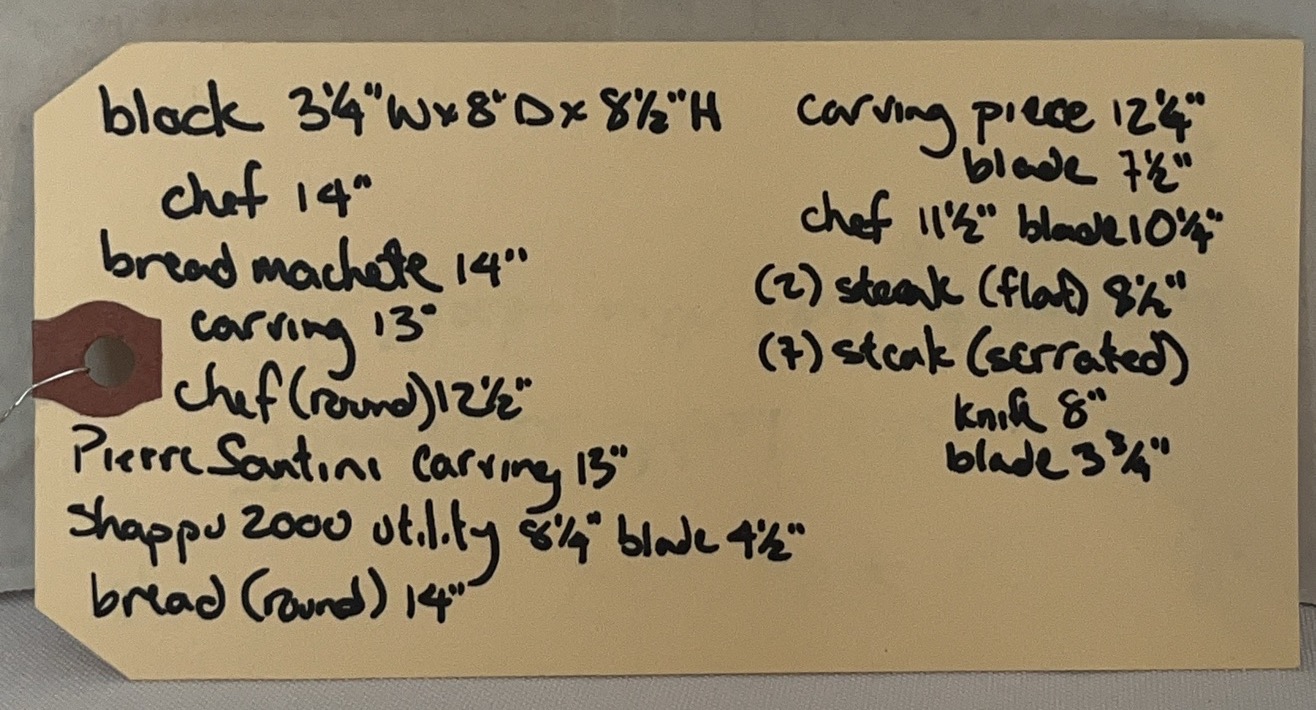 block 3¼"W x 8"D x 8½"H
chef 14"
bread machete 14"
carving 13"
chef (round) 12½"
Pierre Santini carving 13"
Shappu 2000 utility 8¼" blade 4½"
bread (round) 14"
carving piece 12¼"
blade 7½"
chef 11½" blade 10¼"
(2) steak (flat) 8½"
(7) steak (serrated)
knife 8"
blade 3¾"